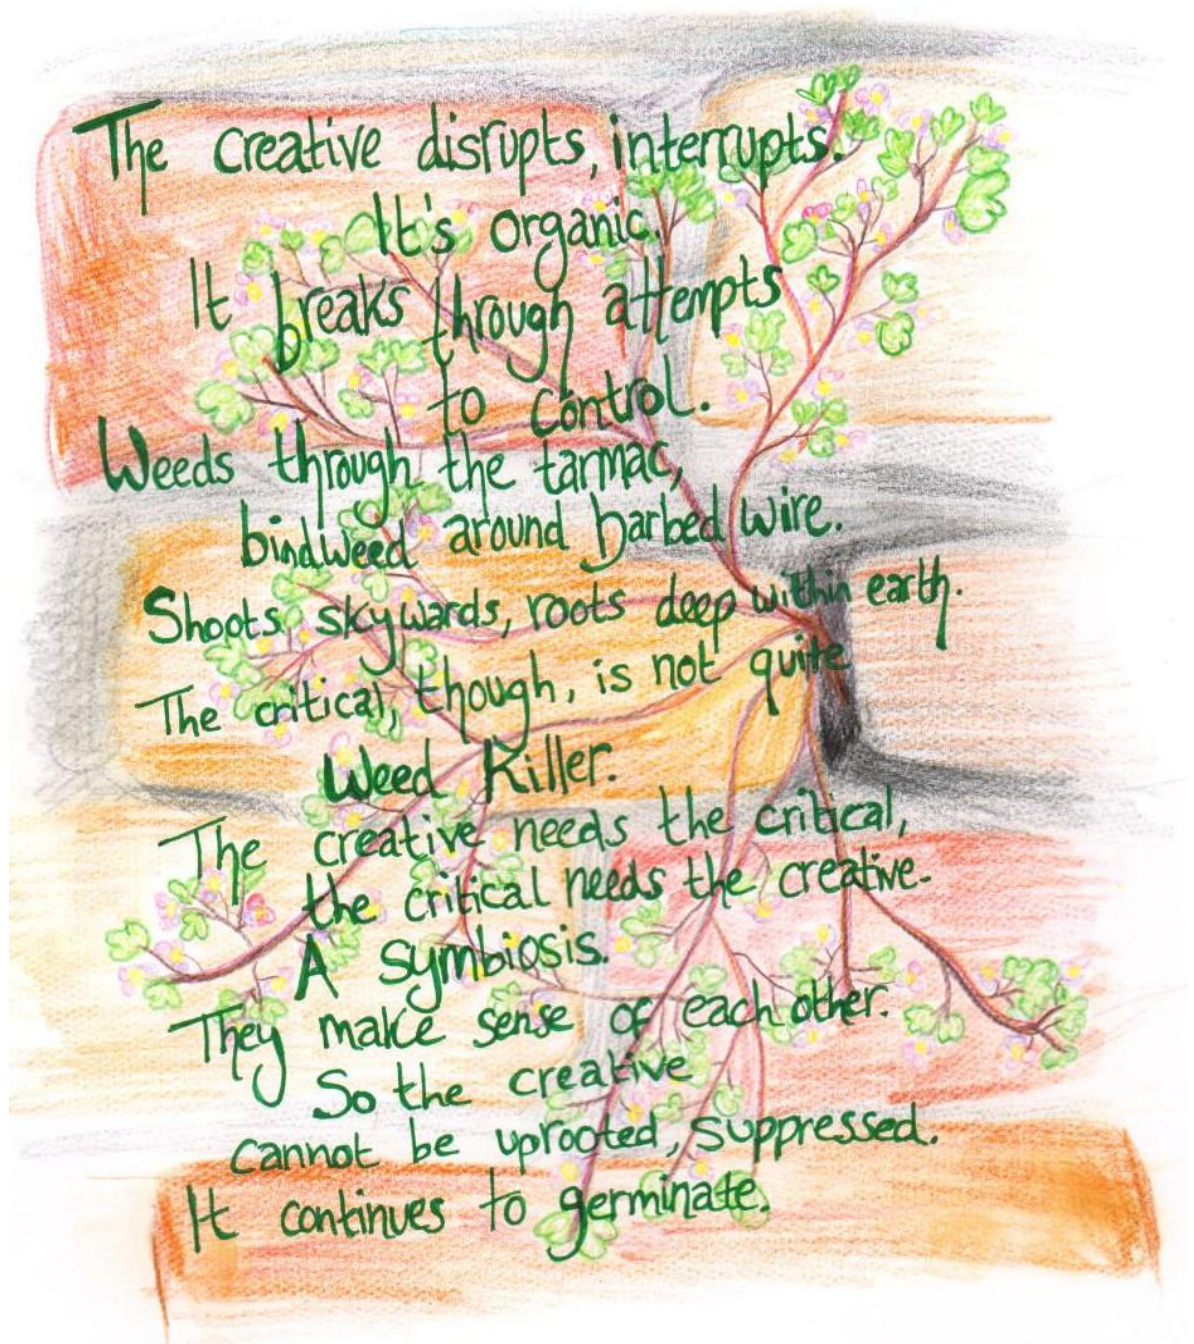 The creative disrupts, interrupts.
It's organic.
It breaks through attempts
to control.
Weeds through the tarmac,
bindweed around barbed wire.
Shoots skywards, roots deep within earth.
The critical, though, is not quite
Weed Killer.
The creative needs the critical,
the critical needs the creative.
A symbiosis.
They make sense of each other.
So the creative
cannot be uprooted, suppressed.
It continues to germinate.